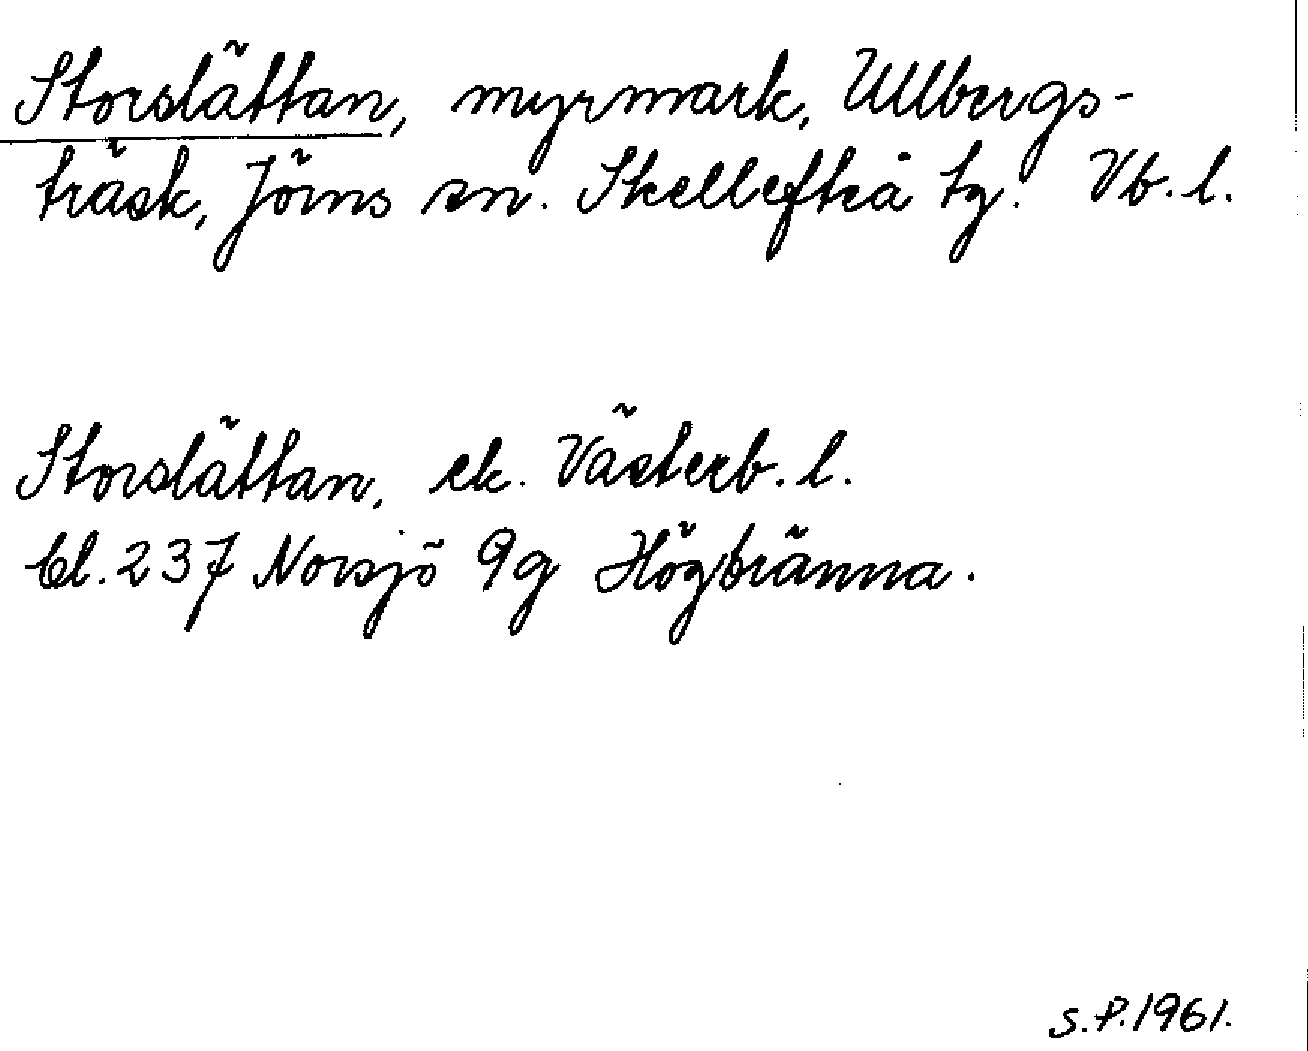 Storslåttan, myrmark, Ullbergs-
träsk, Jörns sn. Skellefteå tg. Vb. l.
Storslåttan, ek. Västerb. l.
bl. 237 Norsjö 9g Högbränna.
S.P. 1961.